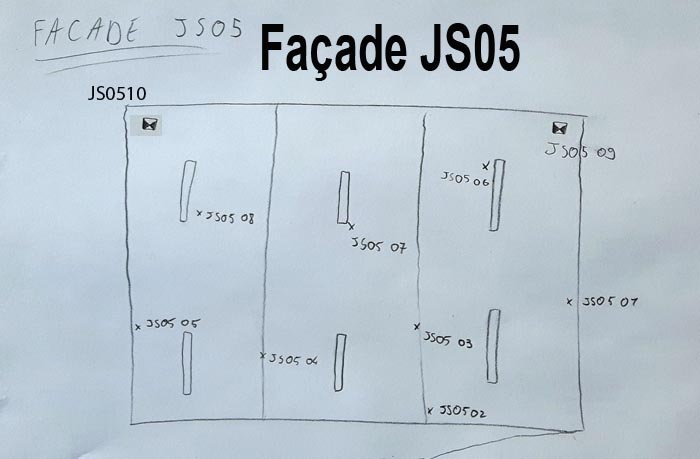 FACADE JS05
Façade JS05
JS0510
JS05 09
JS05 06
JS05 08
JS05 07
JS05 07
JS05 05
JS05 03
JS05 04
JS05 02